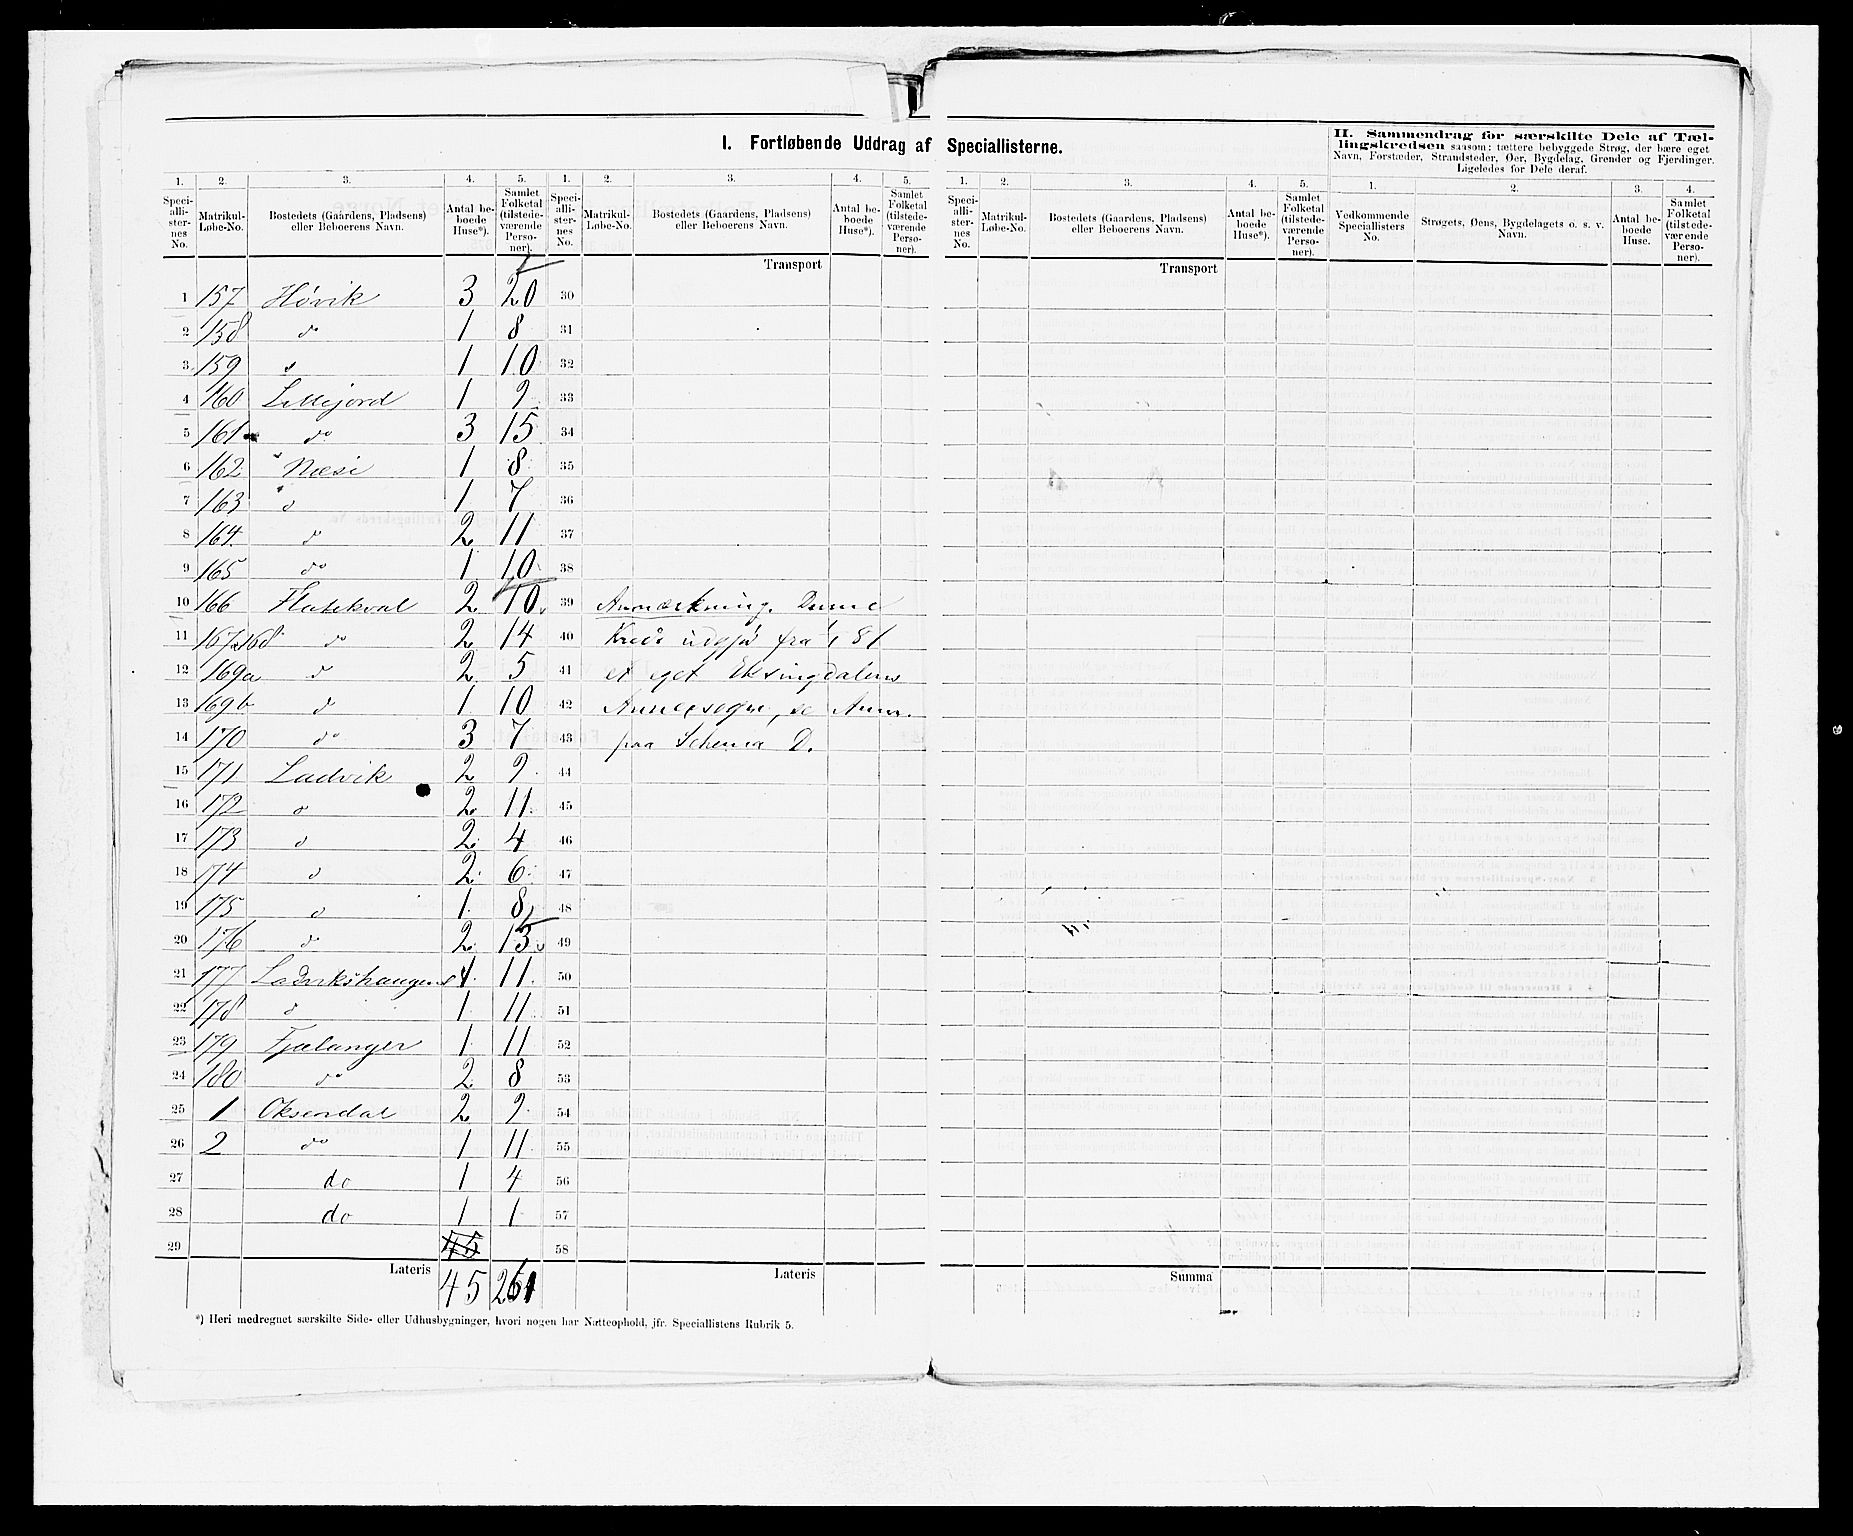 I. Fortløbende Uddrag af Speciallisterne.
II. Sammendrag for særskilte Dele af Tæl-
lingskredsen saasom: tættere bebyggede Strøg, der bære eget
Navn, Forstæder, Strandsteder, Øer, Bygdelag, Grender og Fjerdinger.
Ligeledes for Dele deraf.
1. 2. 3. 4. 5. 1. 2. 3. 4. 5. 1. 2. 3. 4. 5. 1. 2. 3. 4.
Speci-
alli-
ster-
nes
No.
Matrikul-
Løbe-No.
Bostedets (Gaardens, Pladsens)
eller Beboerens Navn.
Antal be-
boede
Huse*).
Samlet
Folketal
(tilstede-
værende
Perso-
ner).
Speci-
alli-
ster-
nes
No.
Matrikul-
Løbe-No.
Bostedets (Gaardens, Pladsens)
eller Beboerens Navn.
Antal be-
boede
Huse*).
Samlet
Folketal
(tilstede-
værende
Perso-
ner).
Speci-
alli-
ster-
nes
No.
Matrikul-
Løbe-No.
Bostedets (Gaardens, Pladsens)
eller Beboerens Navn.
Antal be-
boede
Huse*).
Samlet
Folketal
(tilstede-
værende
Perso-
ner).
Vedkommende
Speciallisters
No.
Strøgets, Øens, Bygdelagets o. s. v.
Navn.
Antal be-
boede
Huse.
Samlet
Folketal
(tilstede-
værende
Perso-
ner).
Transport Transport
1 157 Høvik 3 20 30
2 158 do 1 8 31
3 159 1 10 32
4 160 Lillejord 1 9 33
5 161 do 3 15 34
6 162 Næse 1 8 35
7 163 do 1 7 36
8 164 do 2 11 37
9 165 do 1 10 38
10 166 Flatekval 2 10 39 Anmærkning. Denne
11 167,168 do 2 14 40 Kreds udgjø fra 1/1 81
12 169a do 2 5 41 et eget Eksingdalens
13 169b do 1 10 42 Annexsogn, se Anm.
14 170 do 3 7 43 paa Schema D.
15 171 Ladvik 2 9 44
16 172 do 2 11 45
17 173 do 2 4 46
18 174 do 2 6 47
19 175 do 1 8 48
20 176 do 2 13 49
21 177 Ladvikshaugen 1 11 50
22 178 do 1 11 51
23 179 Fjælanger 1 11 52
24 180 do 2 8 53
25 1 Oksendal 2 9 54
26 2 do 1 11 55
27 do 1 4 56
28 do 1 1 57
29 45 58
Lateris 45 261 Lateris Summa
*) Heri medregnet særskilte Side- eller Udhusbygninger, hvori nogen har Natteophold, jfr. Speciallistens Rubrik 5.